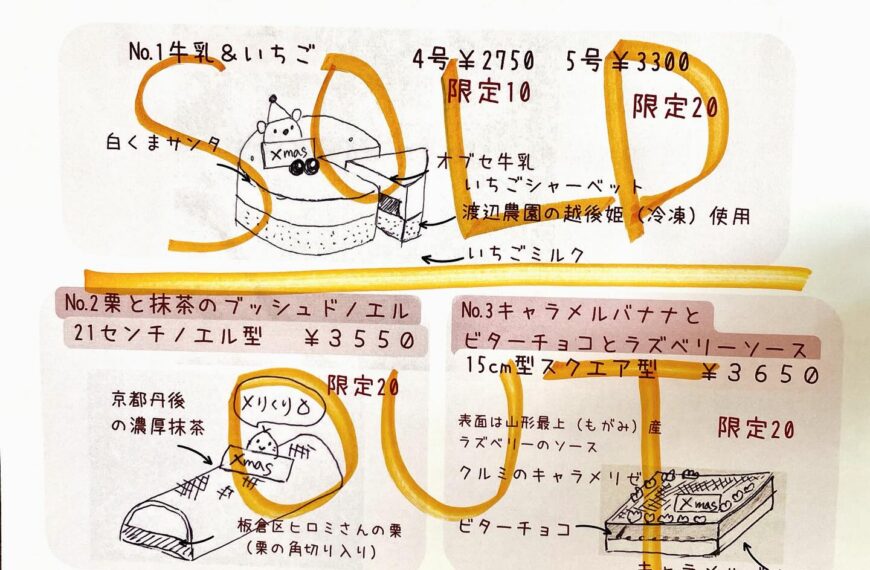 No.1牛乳&いちご 4号¥2750 5号¥3300
限定10 限定20
SOLD
白くまサンタ
Xmas
オブセ牛乳
いちごシャーベット
渡辺農園の越後姫(冷凍)使用
いちごミルク
No.2栗と抹茶のブッシュドノエル
21センチノエル型 ¥3550
限定20
OUT
メリくり
京都丹後
の濃厚抹茶
Xmas
板倉区ヒロミさんの栗
(栗の角切り入り)
No.3キャラメルバナナと
ビターチョコとラズベリーソース
15cm型スクエア型 ¥3650
限定20
表面は山形最上(もがみ)産
ラズベリーのソース
クルミのキャラメリゼ
Xmas
ビターチョコ